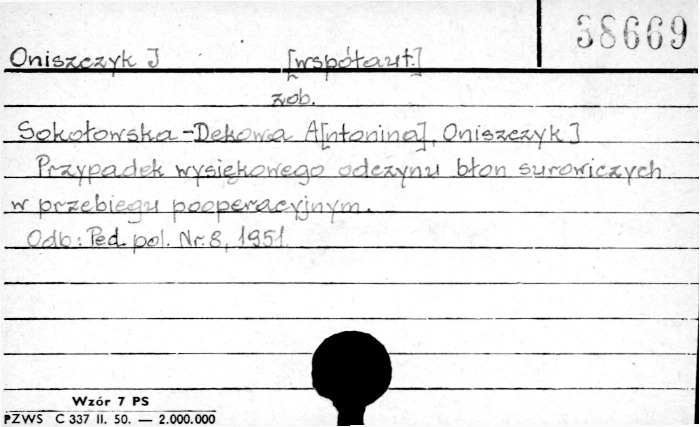 38669
Oniszczyk J [współaut.]
zob.
Sokołowska-Dekowa A[ntonina], Oniszczyk J
Przypadek wysiękowego odczynu błon surowiczych
w przebiegu pooperacyjnym.
Odb: Ped. pol. Nr. 8, 1951.
Wzór 7 PS
PZWS C 337 II. 50. — 2.000.000